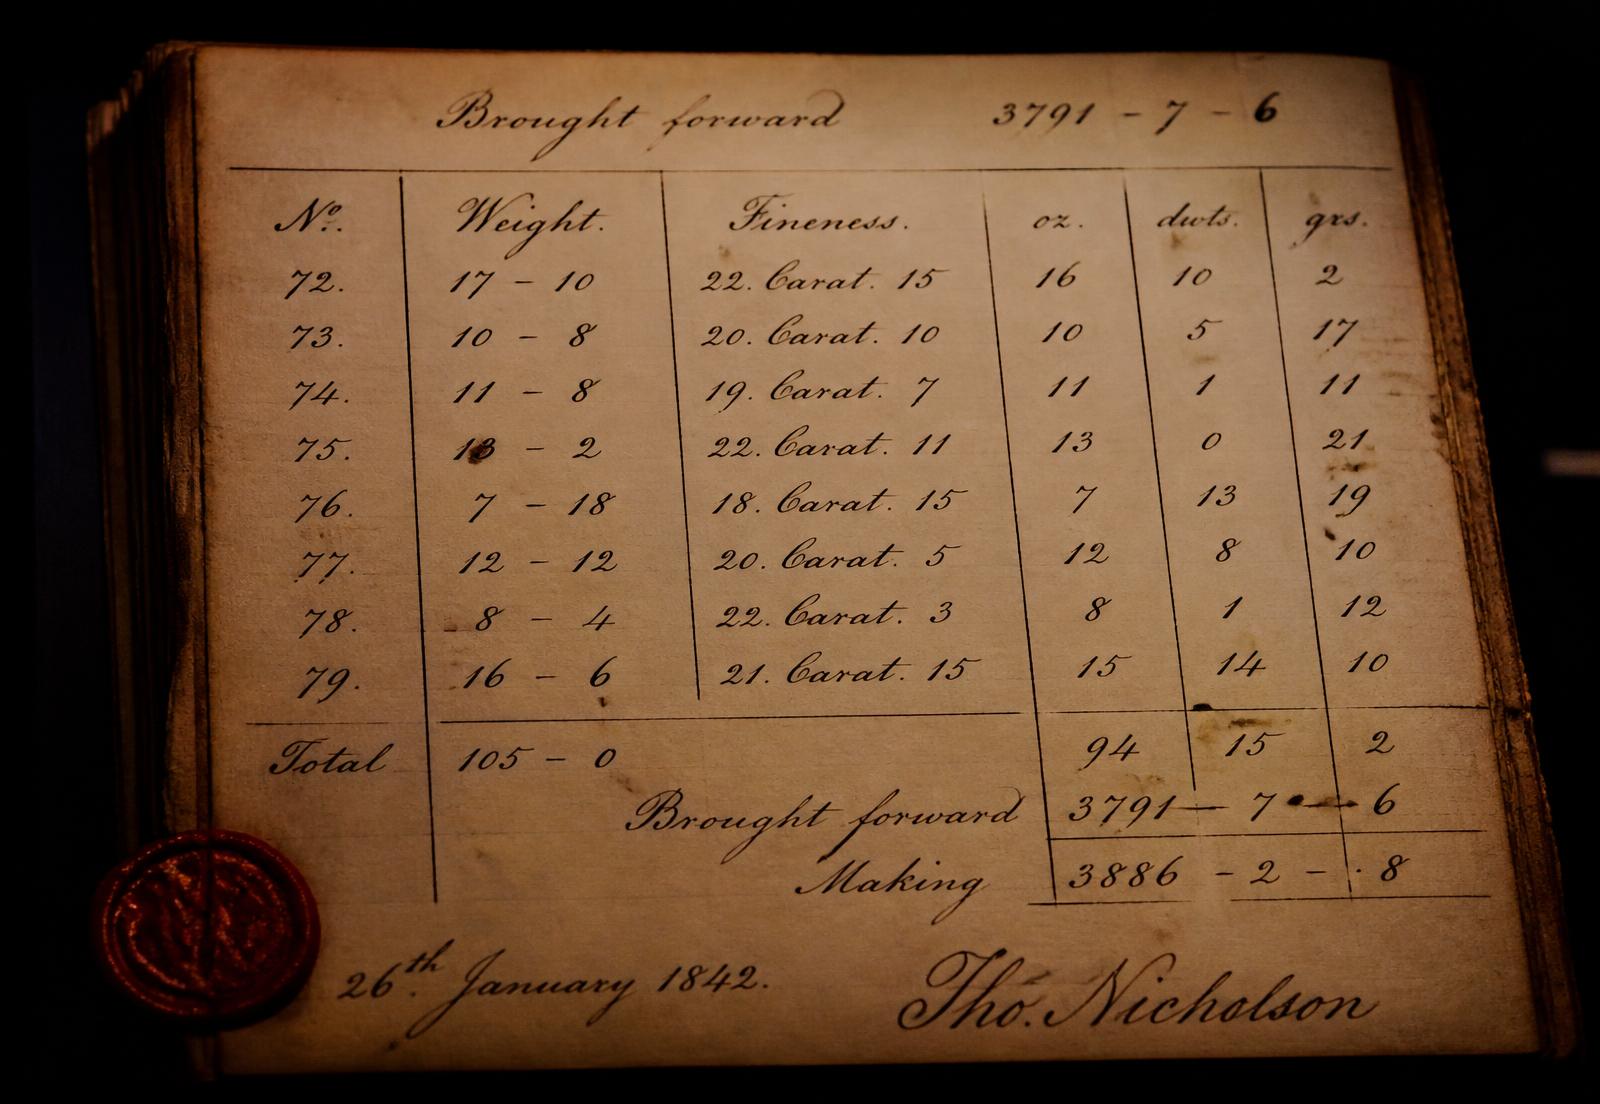 Brought forward 3791 - 7 - 6
No. Weight. Fineness. oz. dwts. grs.
72. 17 - 10 22. Carat. 15 16 10 2
73. 10 - 8 20. Carat. 10 10 5 17
74. 11 - 8 19. Carat. 7 11 1 11
75. 13 - 2 22. Carat. 11 13 0 21
76. 7 - 18 18. Carat. 15 7 13 19
77. 12 - 12 20. Carat. 5 12 8 10
78. 8 - 4 22. Carat. 3 8 1 12
79. 16 - 6 21. Carat. 15 15 14 10
Total 105 - 0 94 15 2
Brought forward 3791 — 7 — 6
Making 3886 - 2 - 8
26th. January 1842.
Tho. Nicholson